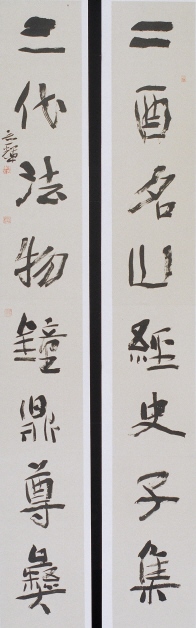 二酉名山經史子集
三代法物鐘鼎尊彝